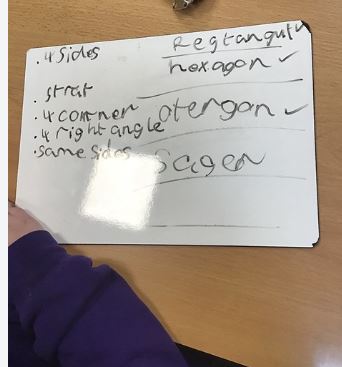 . 4 sides
. strat
. 4 corner
. 4 right angle
. same sides
Regtanguln
hexagon ✓
otergon ✓
Scger